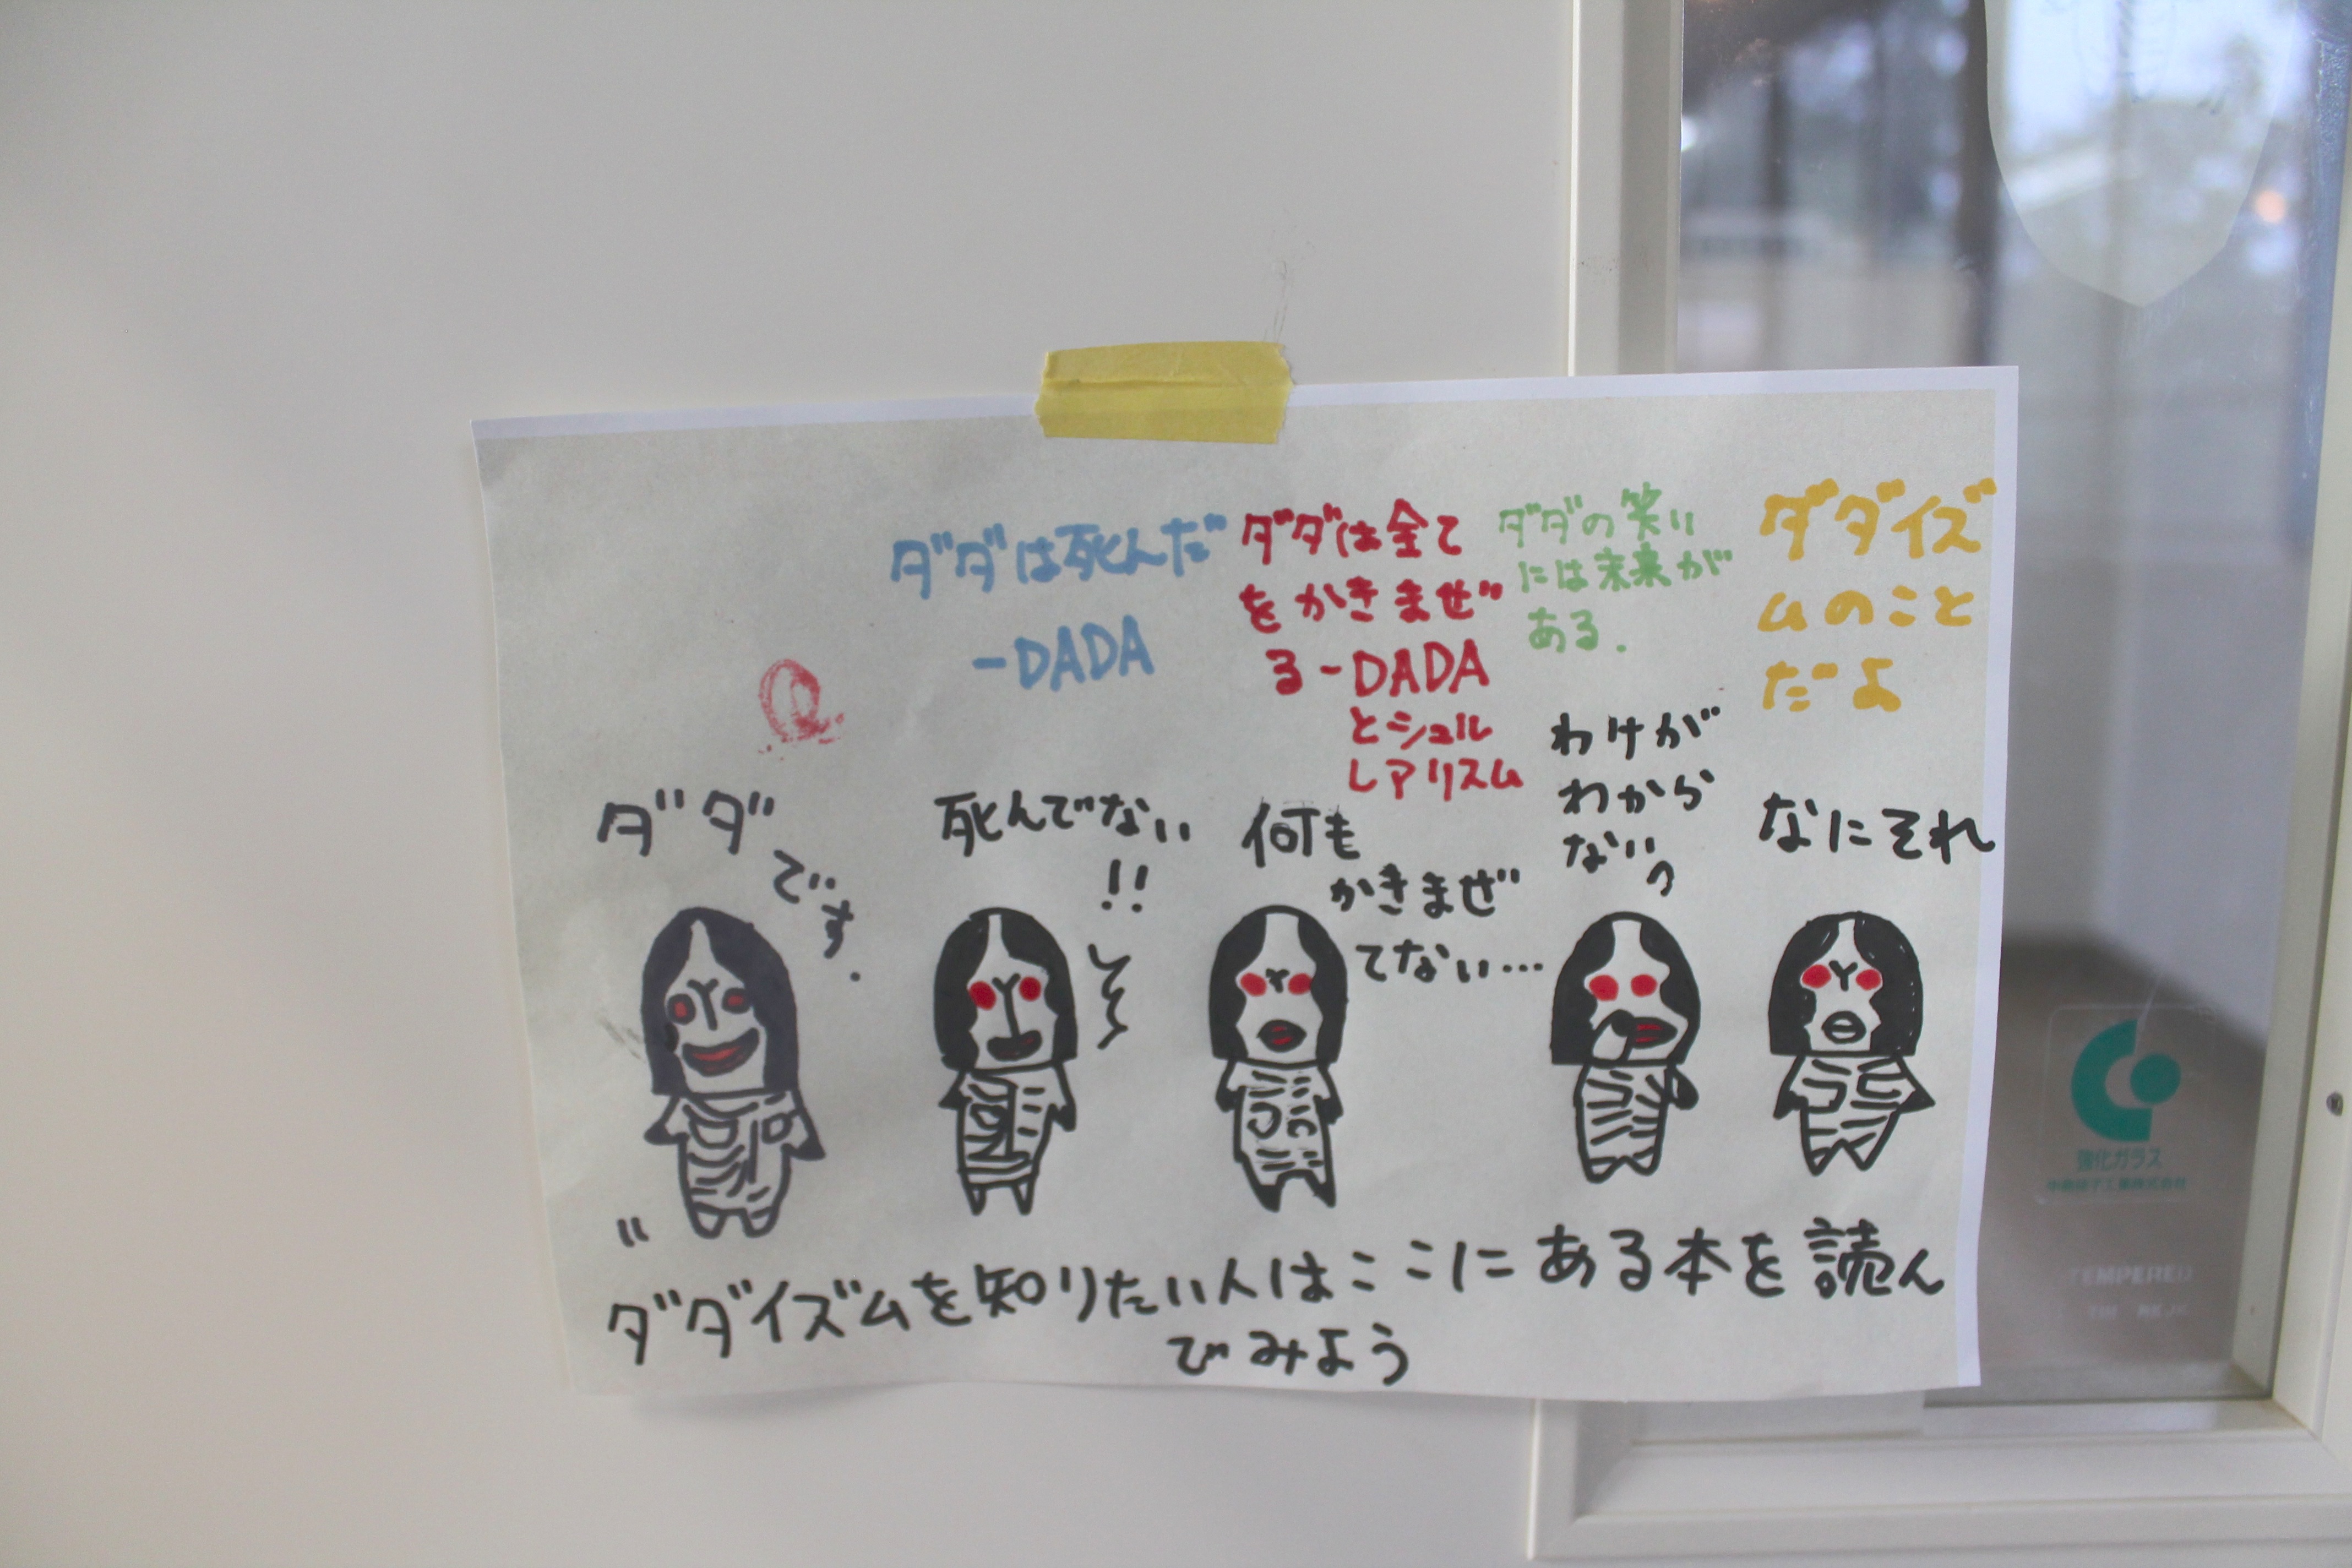 ダダは死んだ
-DADA
ダダは全て
をかきまぜ
る-DADA
とシュル
レアリスム
ダダの笑い
には未来が
ある.
ダダイズ
ムのこと
だよ
ダダ
です.
死んでない
!!
何も
かきまぜ
てない...
わけが
わから
ないっ
なにそれ
ダダイズムを知りたい人はここにある本を読ん
でみよう
強化ガラス
TEMPERED